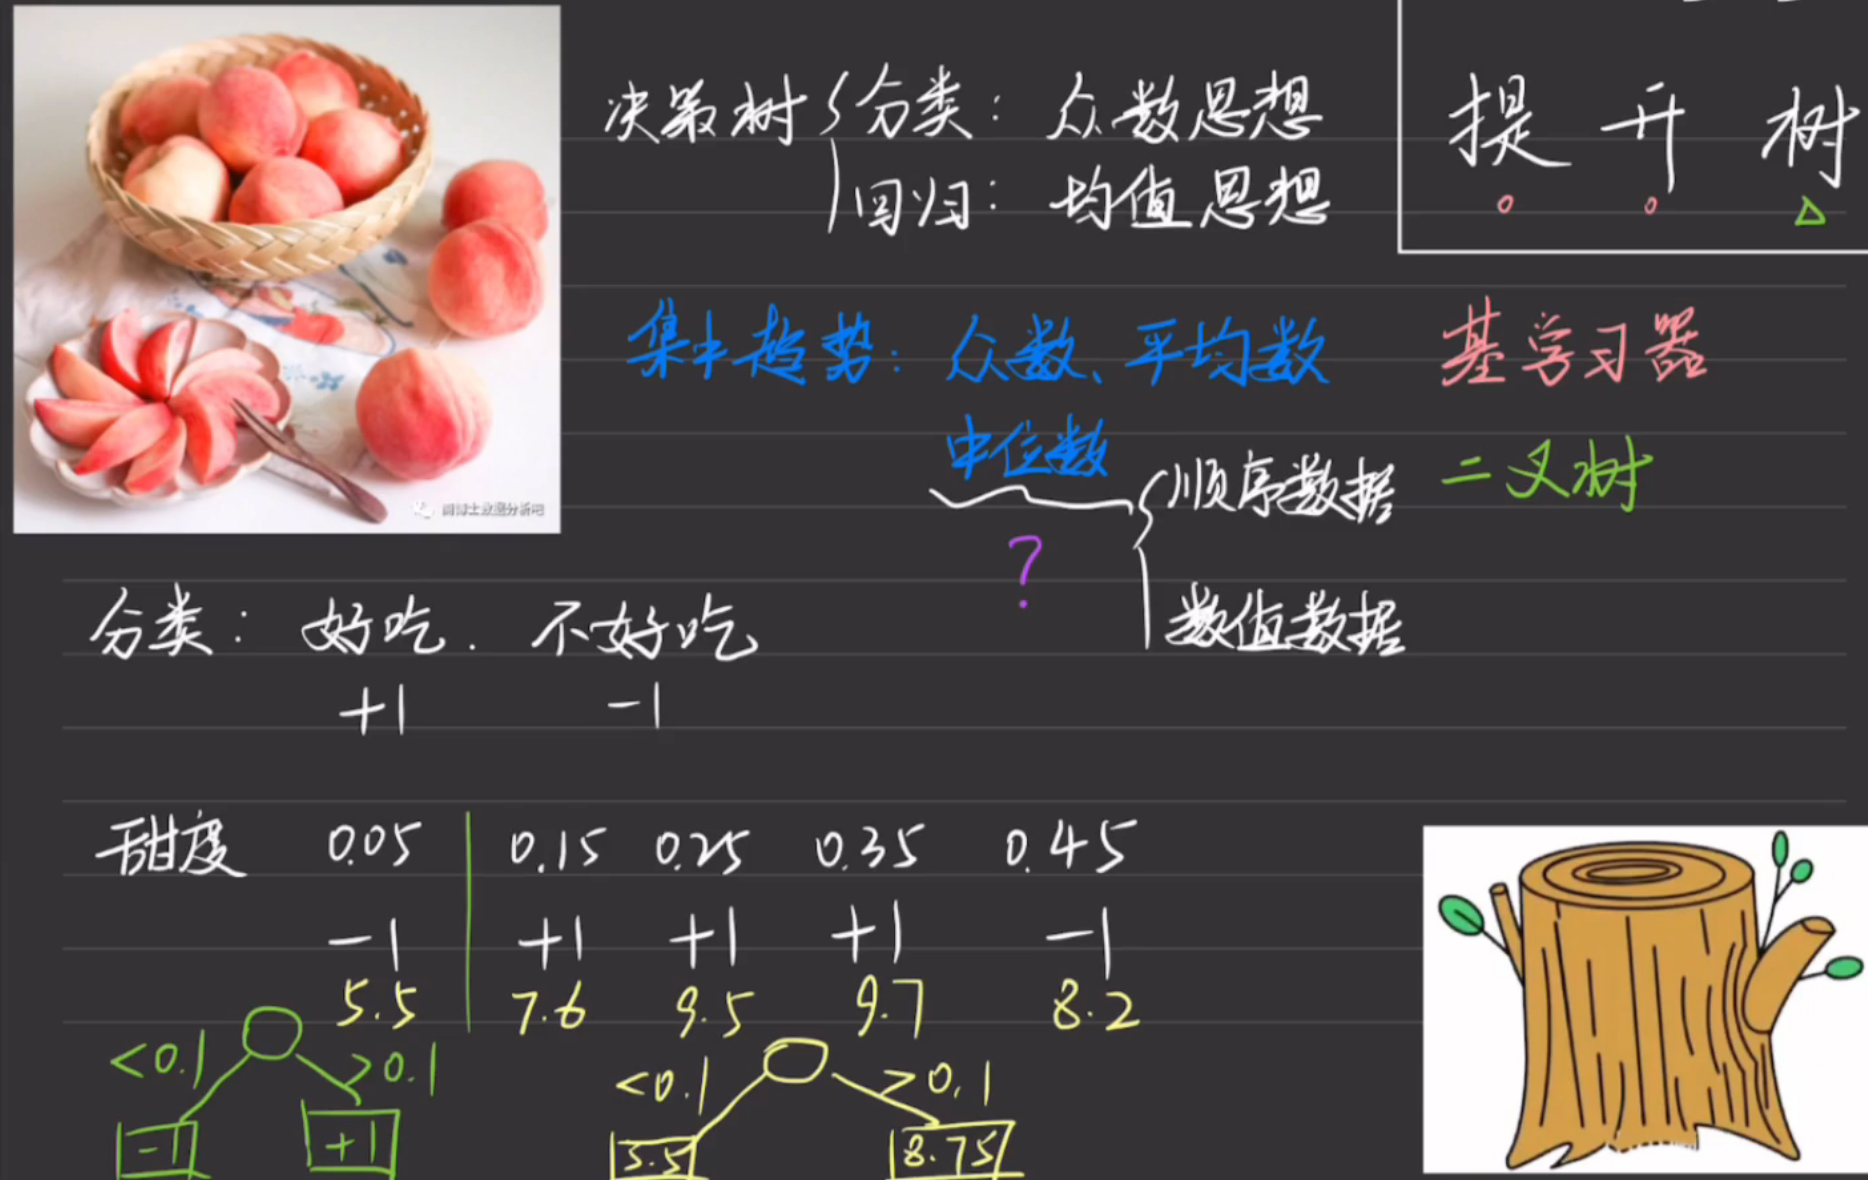 决策树 分类：众数思想
回归：均值思想
提升树
集中趋势：众数、平均数
中位数
?
顺序数据
数值数据
基学习器
二叉树
分类：好吃.不好吃
+1 -1
甜度 0.05 0.15 0.25 0.35 0.45
-1 +1 +1 +1 -1
5.5 7.6 9.5 9.7 8.2
<0.1 >0.1
-1 +1
<0.1 >0.1
5.5 8.75